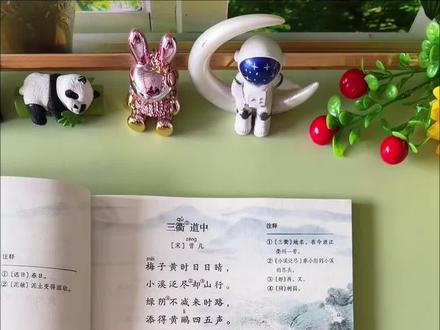 注释
①〔迟日〕春日。
②〔泥融〕泥土变得湿软。
qú
三衢①道中
zēng
［宋］曾几
méi
梅子黄时日日晴，
小溪泛尽②却③山行。
绿阴④不减来时路，
添得黄鹂四五声。
注释
①〔三衢〕地名，在今浙江
衢州一带。
②〔小溪泛尽〕乘小船到小溪
的尽头。
③〔却〕再、又。
④〔阴〕树荫。